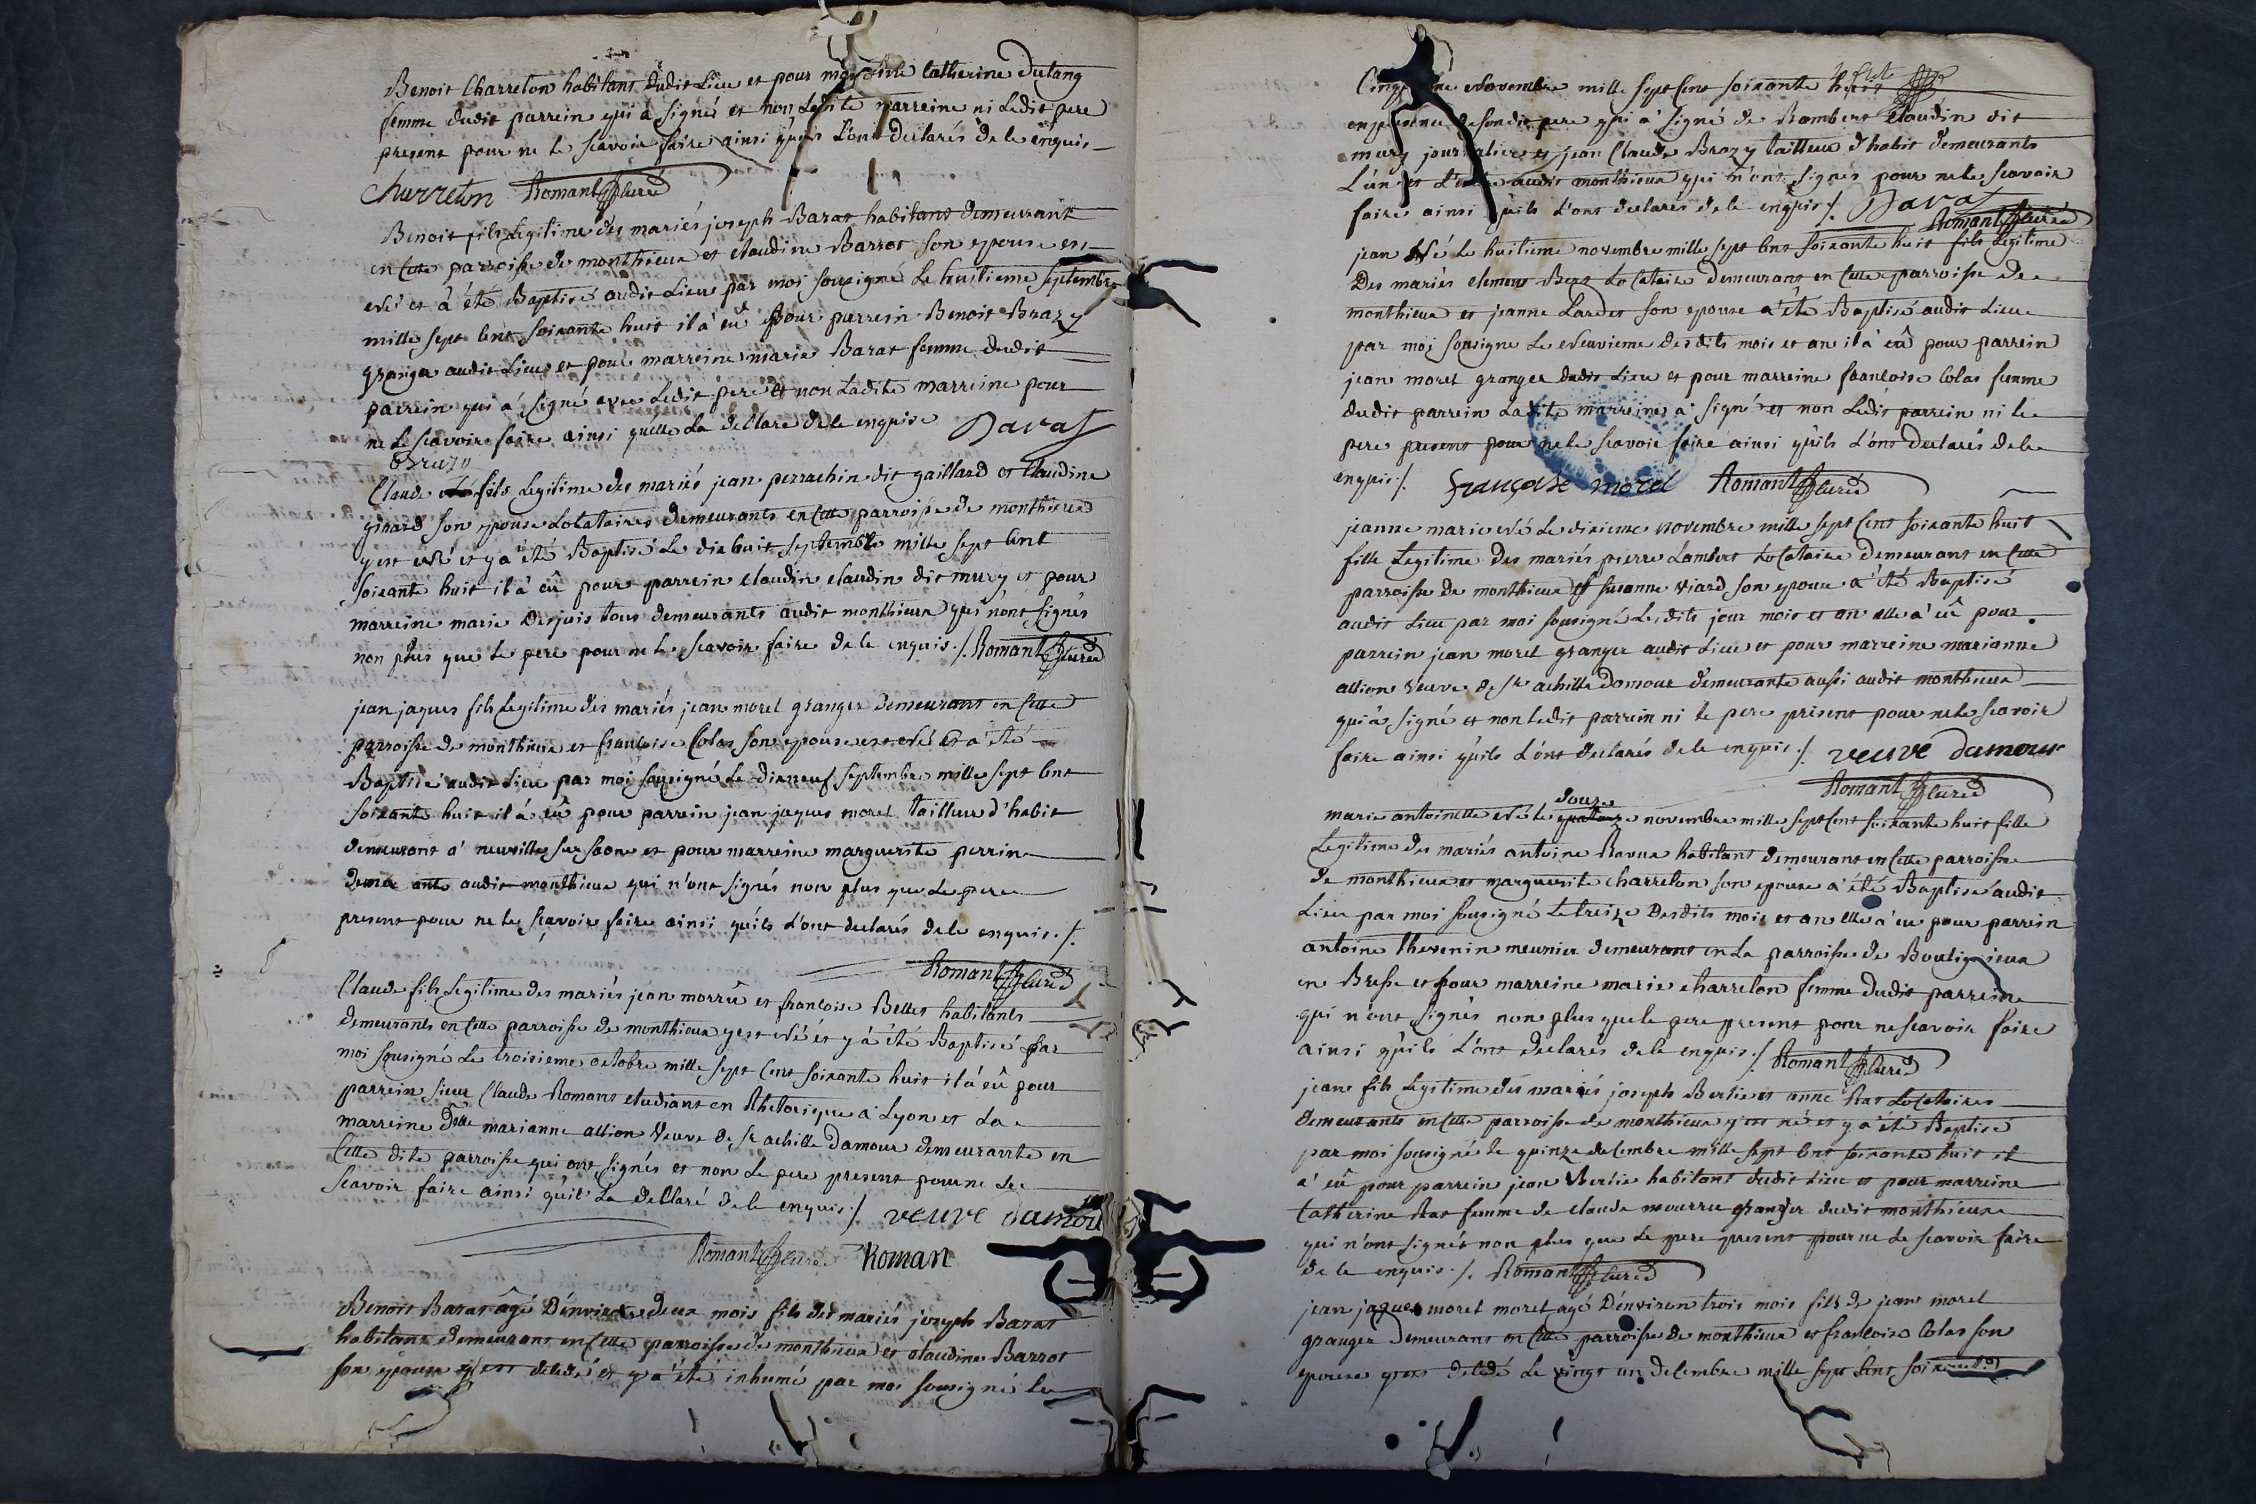 Benoit Charreton habitant dudit Lieu et pour marreine Catherine dutang
femme dudit parrein qui à signé et non Ladite marreine ni Ledit pere
present pour ne le scavoir faire ainsi qu'ils L'ont declarés de le enquis
Charreton Romant curé
Benoit fils Legitime des mariés joseph Barat habitant demeurant
en Cette parroisse de monthieux et claudine Barrot son epouse est
né et à été Baptisé audit Lieu par moi sousigné Le huitieme septembre
mille sept Cent soixante huit il à eû pour parrein Benoit Brazy
granger audit Lieu et pour marreine marie Barat femme dudit
parrein qui à signé avec Ledit pere et non Ladite marreine pour
ne Le scavoir faire ainsi quelle La declaré de le enquise Barat
Brazy
Claude né fils Legitime des mariés jean perrachin dit gaillard et Claudine
girard son epouse Locataires demeurants en Cette parroisse de monthieux
y est né et y à été Baptisé Le dix huit septembre mille sept Cent
soixante huit il à eû pour parrein claudin claudin dit mury et pour
marreine marie Dejuis tous demeurants audit monthieux qui n'ont signés
non plus que le pere pour ne le scavoir faire de le enquis ./. Romant curé
jean jaques fils Legitime des mariés jean morel granger demeurant en Cette
parroisse de monthieux et francoise Colas son epouse est né et à été
Baptisé audit Lieu par moi sousigné Le dixneuf septembre mille sept Cent
soixante huit il à eû pour parrein jean jaques morel tailleur d'habit
demeurant à neuville sur saone et pour marreine marguerite perrin
demeurante audit monthieux qui n'ont signés non plus que Le pere
present pour ne le scavoir faire ainsi qu'ils L'ont declarés de le enquis ./.
Romant curé
Claude fils Legitime des mariés jean morrû et francoise Bellet habitants
demeurants en Cette parroisse de monthieux y est né et y à été Baptisé par
moi sousigné Le troisieme octobre mille sept Cent soixante huit il à eû pour
parrein sieur Claude Romant etudiant en Rhetorique à Lyon et La
marreine Dlle marianne allion veuve de Sr achille Damour demeurante en
Cette dite parroisse qui ont signés et non Le pere present pour ne Le
scavoir faire ainsi qu'il La declaré de le enquis ./. veuve damour
Romant curé Roman
Benoit Barat âgé D'environ deux mois fils des mariés joseph Barat
habitant demeurant en Cette parroisse de monthieux et claudine Barrot
son epouse y est decedé et y à été inhumé par moi sousigné le
novembre mille sept Cent soixante huit
en presence de son dit pere qui à signé de Rambert Claudin dit
mury journalier et jean Claude Brazy tailleur d'habit demeurants
L'un et L'autre audit monthieux qui n'ont signés pour ne le scavoir
faire ainsi qu'ils L'ont declarés de le enquis ./. Barat
Romant curé
jean Né Le huitieme novembre mille sept Cent soixante huit fils Legitime
Des mariés clement Bert Locataire demeurant en Cette parroisse de
monthieux et jeanne Lardet son epouse à été Baptisé audit Lieu
par moi sousigné Le neuvieme desdits mois et an il à eû pour parrein
jean morel granger dudit Lieu et pour marreine francoise Colas femme
dudit parrein Ladite marreine à signé et non Ledit parrein ni le
pere present pour ne le scavoir faire ainsi qu'ils L'ont declarés de le
enquis ./. françoise morel Romant curé
jeanne marie né Le dixieme novembre mille sept Cent soixante huit
fille Legitime des mariés pierre Lambert Locataire demeurant en Cette
parroisse de monthieux et susanne viard son epouse à été Baptisé
audit Lieu par moi sousigné Lesdits jour mois et an elle à eû pour
parrein jean morel granger audit Lieu et pour marreine marianne
allion veuve de Sr achille Damour demeurante aussi audit monthieux
qui à signé et non ledit parrein ni le pere présent pour ne le scavoir
faire ainsi qu'ils L'ont declarés de le enquis ./. veuve damour
Romant curé
douze
marie antoinette né le quatorze novembre mille sept Cent soixante huit fille
Legitime des mariés antoine Ravux habitant demeurant en Cette parroisse
de monthieux et marguerite charreton son epouse à été Baptisé audit
Lieu par moi sousigné Le treize desdits mois et an elle à eu pour parrein
antoine thevenin meunier demeurant en La parroisse de Bouligneux
en Bresse et pour marreine marie charreton femme dudit parrein
qui n'ont signés non plus que le pere present pour ne scavoir faire
ainsi qu'ils L'ont declarés de le enquis ./. Romant curé
jean fils Legitime des mariés joseph Berlie et anne Rat Locataires
demeurants en Cette parroisse de monthieux y est né et y à été Baptisé
par moi sousigné le quinze decembre mille sept Cent soixante huit il
à eû pour parrein jean Berlie habitant dudit Lieu et pour marreine
Catherine Rat femme de claude mourru granger dudit monthieux
qui n'ont signés non plus que Le pere present pour ne Le scavoir faire
de le enquis ./. Romant curé
jean jaques morel morel agé D'environ trois mois fils de jean morel
granger demeurant en Cette parroisse de monthieux et francoise Colas son
epouse y est decedé Le vingt un decembre mille sept Cent soixante